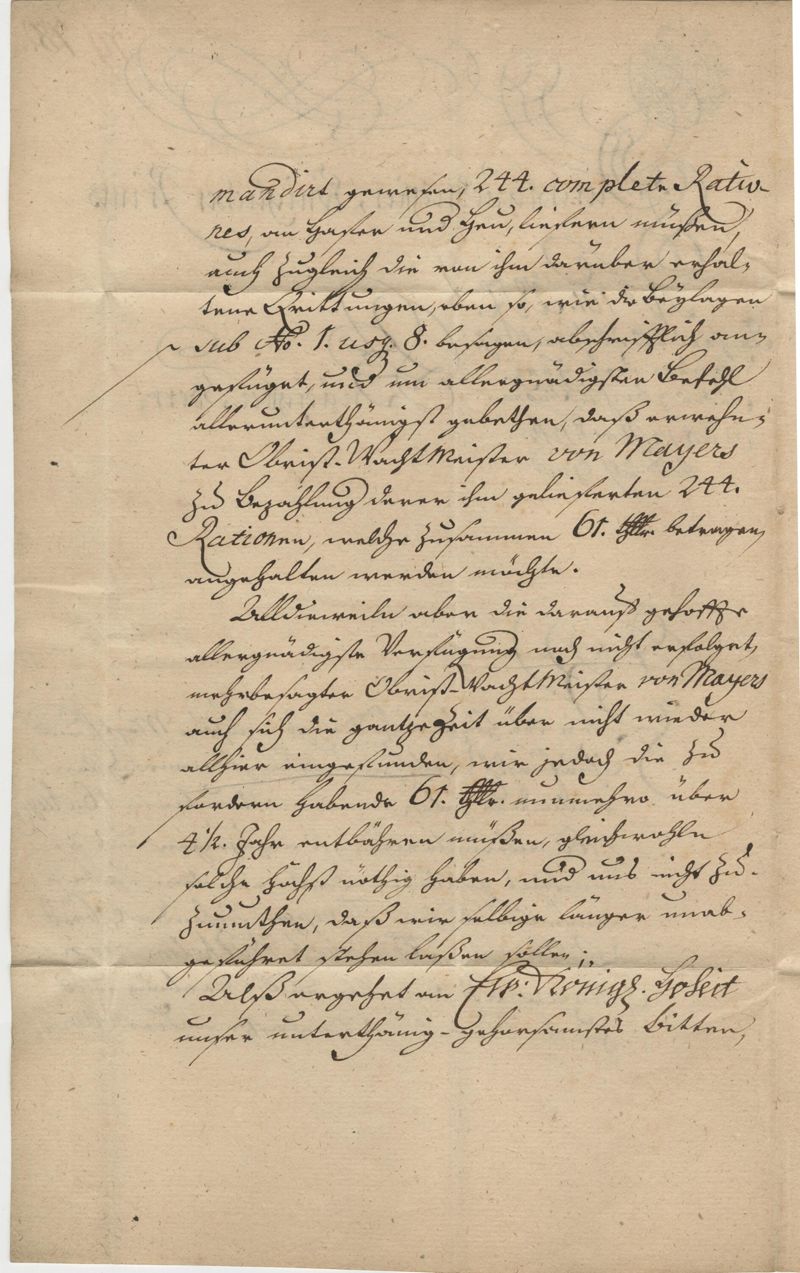 mandirt gewesen, 244. complete Ratio-
nes, an Hafer und Heu, liefern müßen,
auch zugleich die von ihm darüber erhal-
tene Quittungen, eben so, wie die Beylagen
sub No. 1. usq. 8. besagen, abschrifftlich an-
gefüget, und um allergnädigsten Befehl
allerunterthänigst gebethen, daß erwehn-
ter Obrist-Wachtmeister von Mayers
zu Bezahlung derer ihm gelieferten 244.
Rationen, welche zusammen 61. Thlr. betragen,
angehalten werden möchte.
Alldieweiln aber die darauf gehoffte
allergnädigste Verfügung noch nicht erfolget,
mehrbesagter Obrist-Wachtmeister von Mayers
auch sich die gantze Zeit über nicht wieder
allhier eingefunden, wir jedoch die zu
fordern habende 61. Thlr. nunmehro über
4½. Jahr entbähren müßen, gleichwohln
solche höchst nöthig haben, und uns nicht zu-
zumuthen, daß wir selbige länger unab-
geführet stehen laßen sollen;
Alß ergehet an Ew: Königl. Hoheit
unser unterthänig-gehorsamstes Bitten,